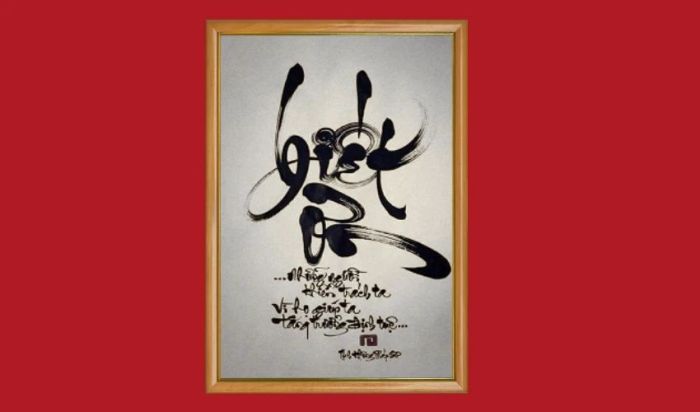 biết
ơn
...những người
khiển trách ta
vì họ giúp ta
tăng trưởng định tuệ...